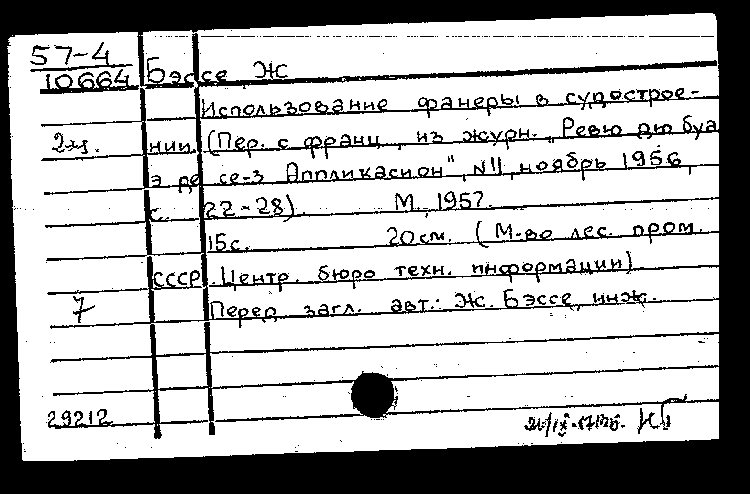 57-4
10664 Бэссе, Ж
Использование фанеры в судострое-
2 нии. (Пер. с франц., из журн. "Ревю дю буа
э де се-з Аппликасион", №11, ноябрь 1956,
с. 22-28). М., 1957.
15с. 20см. (М-во лес. пром.
СССР. Центр. бюро техн. информации)
7 Перед загл. авт.: Ж. Бэссе, инж.
29212